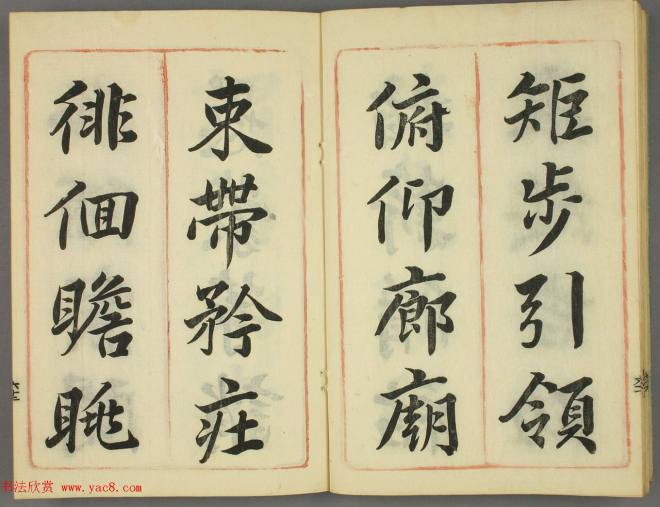 矩步引領
俯仰廊廟
束帶矜庄
徘徊瞻眺
书法欣赏 www.yac8.com